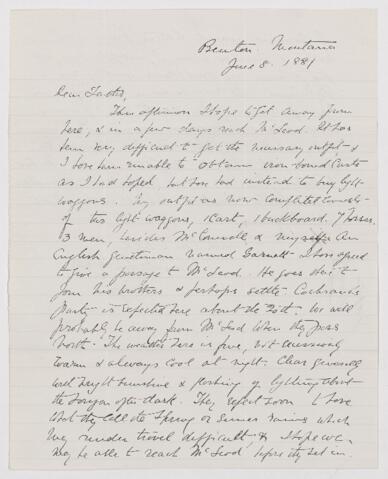 Benton. Montana
June 8. 1881
Dear Father,
This afternoon I hope to get away from
here, & in a few days reach McLeod. It has
been very difficult to get the necessary outfit &
I have been unable to obtain iron-bound carts
as I had hoped, but have had instead to buy light
waggons. My outfit as now completed consists
of two light waggons, 1 cart, 1 buckboard, 7 horses
3 men, besides McConnell & myself. An
English gentleman named Garnett I have agreed
to give a passage to McLeod. He goes to
join his brothers & perhaps settle. Cochrane's
party is expected here about the 20th. We will
probably be away from McLeod when they pass
North. The weather here is fine, not excessively
warm & always cool at night. Clear generally
with bright sunshine & flashing of lightning about
the horizon after dark. They expect soon to have
what they call the Spring or Summer rains which
may render travel difficult, & I hope we
may be able to reach McLeod before they set in.